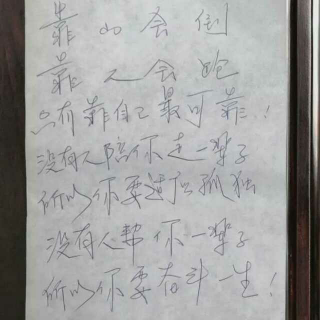 靠山会倒
靠人会跑
只有靠自己最可靠！
没有人陪你走一辈子
所以你要适应孤独
没有人帮你一辈子
所以你要奋斗一生！